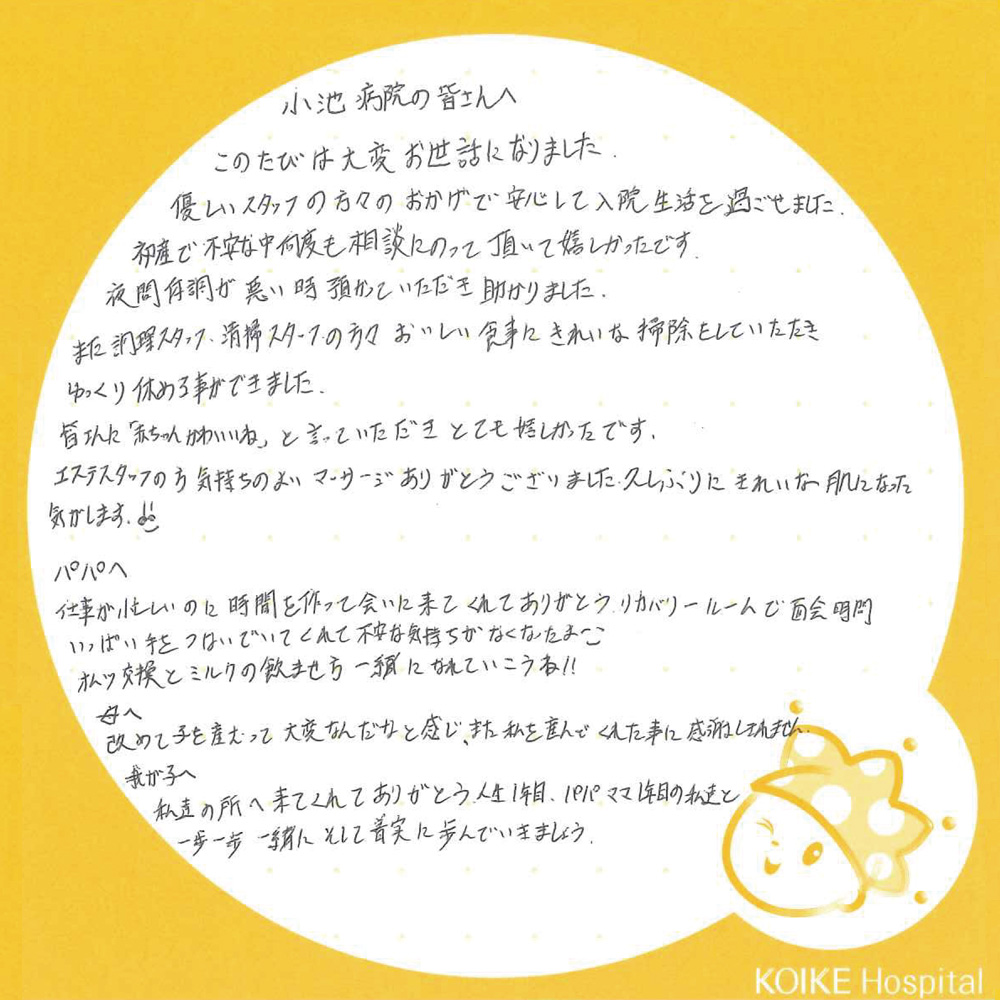 小池病院の皆さんへ
このたびは大変お世話になりました.
優しいスタッフの方々のおかげで安心して入院生活を過ごせました.
初産で不安な中何度も相談にのって頂いて嬉しかったです.
夜間体調が悪い時預かっていただき助かりました.
また調理スタッフ、清掃スタッフの方々 おいしい食事にきれいな掃除をしていただき
ゆっくり休める事ができました.
皆さんに「赤ちゃんかわいいね」と言っていただきとても嬉しかったです.
エステスタッフの方気持ちのよいマッサージありがとうございました.久しぶりにきれいな肌になった
気がします.
パパへ
仕事が忙しいのに時間を作って会いに来てくれてありがとう.リカバリールームで面会時間
いっぱい手をつないでいてくれて不安な気持ちがなくなったよ〜
オムツ交換とミルクの飲ませ方一緒になれていこうね!!
母へ
改めて子を産むって大変なんだなと感じ、また私を産んでくれた事に感謝しきれません.
我が子へ
私達の所へ来てくれてありがとう.人生1年目、パパママ1年目の私達と
一歩一歩一緒にそして着実に歩んでいきましょう.
KOIKE Hospital